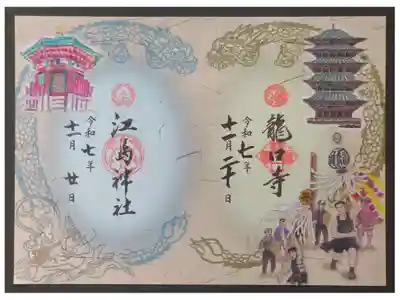 龍口寺
令和七年
十一月二十日
江島神社
令和七年
十一月廿日